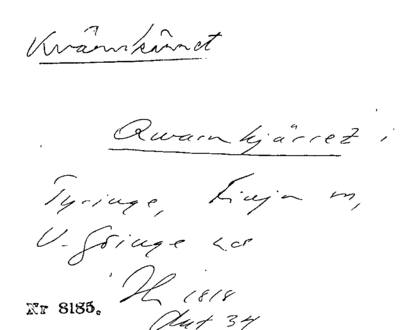 Kvärnkärret
Qwarnkjärret i
Tyringe, Finja m,
V. Göinge hd
H 1818
Nr 8185. Akt 34